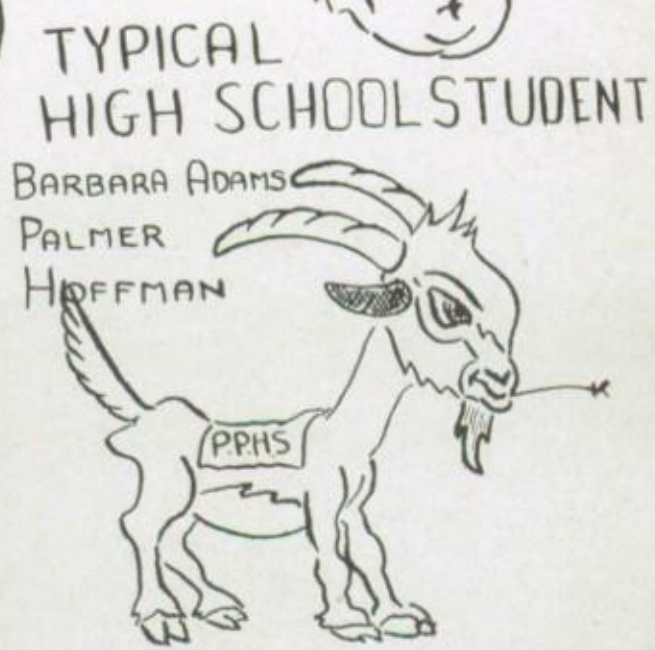 TYPICAL
HIGH SCHOOL STUDENT
BARBARA ADAMS
PALMER
HOFFMAN
P.P.H.S